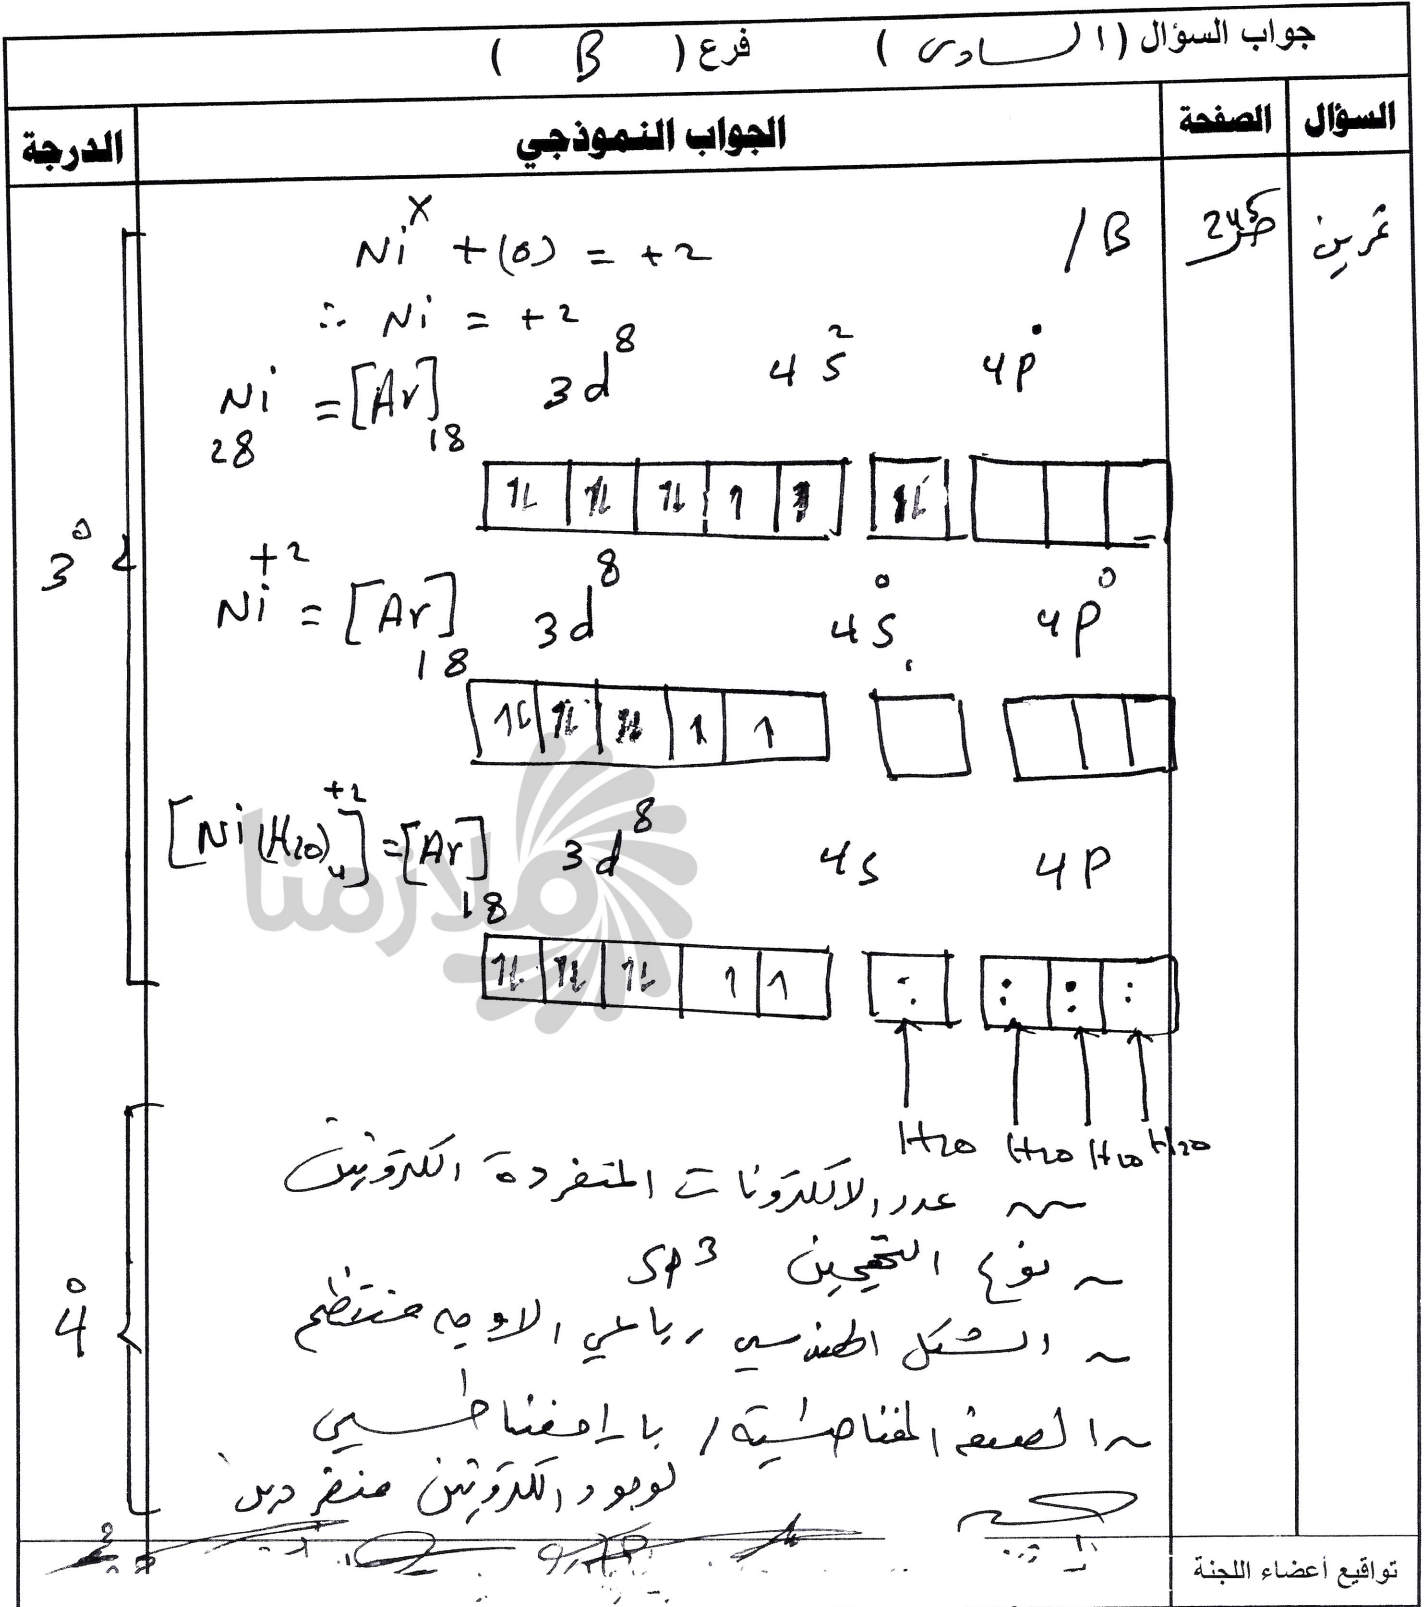 جواب السؤال ( السادس ) فرع ( B )
السؤال الصفحة الجواب النموذجي الدرجة
تمرين
B /
Ni^x + (0) = +2
∴ Ni = +2
28Ni = [Ar]18 3d^8 4s^2 4p^0
1L 1L 1L 1 1 1L
3°
Ni^+2 = [Ar]18 3d^8 4s^0 4p^0
1L 1L 1L 1 1
[Ni(H2O)4]^+2 = [Ar]18 3d^8 4s 4p
ملازمنا
1L 1L 1L 1 1 : : : :
H2O H2O H2O H2O
~ عدد الالكترونات المنفردة الكترونين
~ نوع التهجين sp^3
4°
~ الشكل الهندسي رباعي الاوجه منتظم
~ الصفة المغناطيسية / بارامغناطيسي
لوجود الكترونين منفردين
تواقيع أعضاء اللجنة